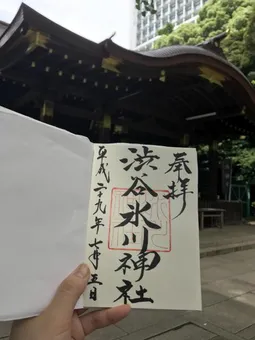 奉拝
渋谷氷川神社
平成二十九年七月五日